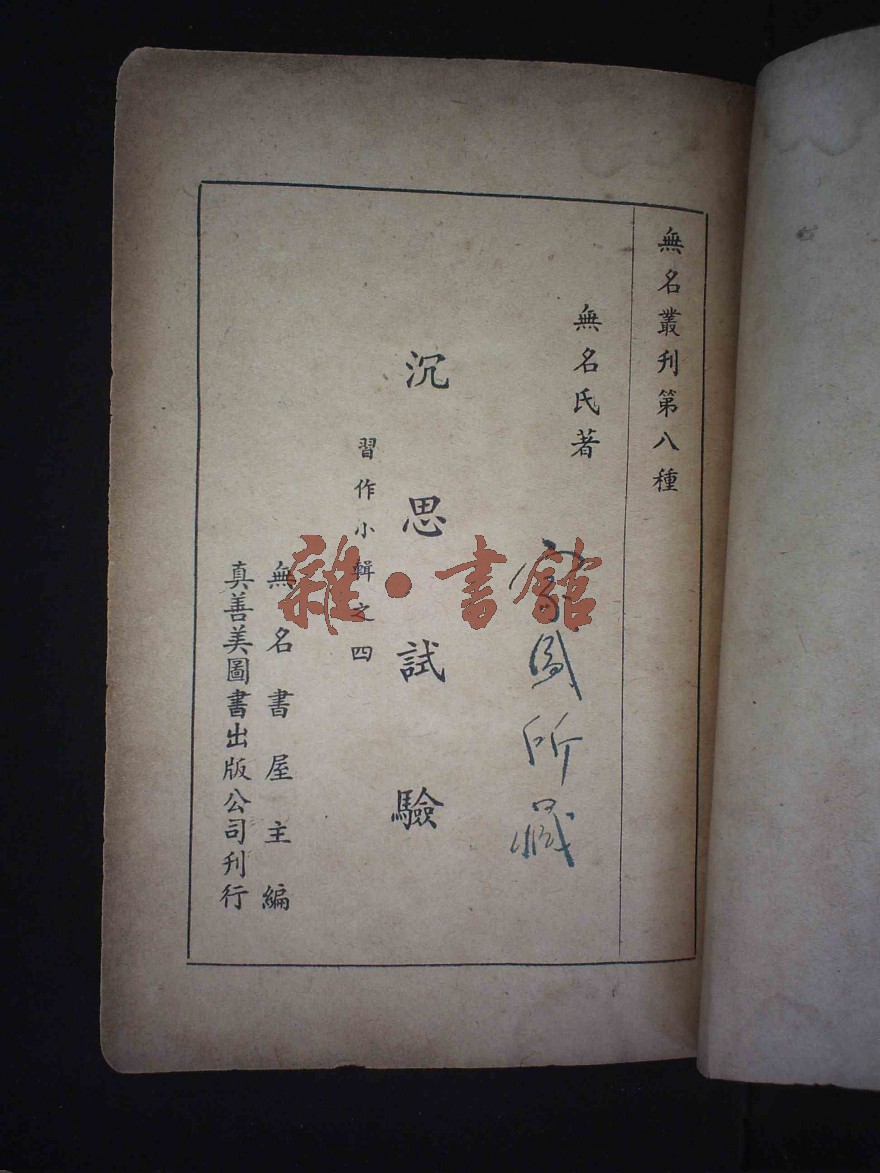 無名叢刊第八種
無名氏著
所藏
沉思試驗
習作小輯之四
無名書屋主編
真善美圖書出版公司刊行
雜·書館